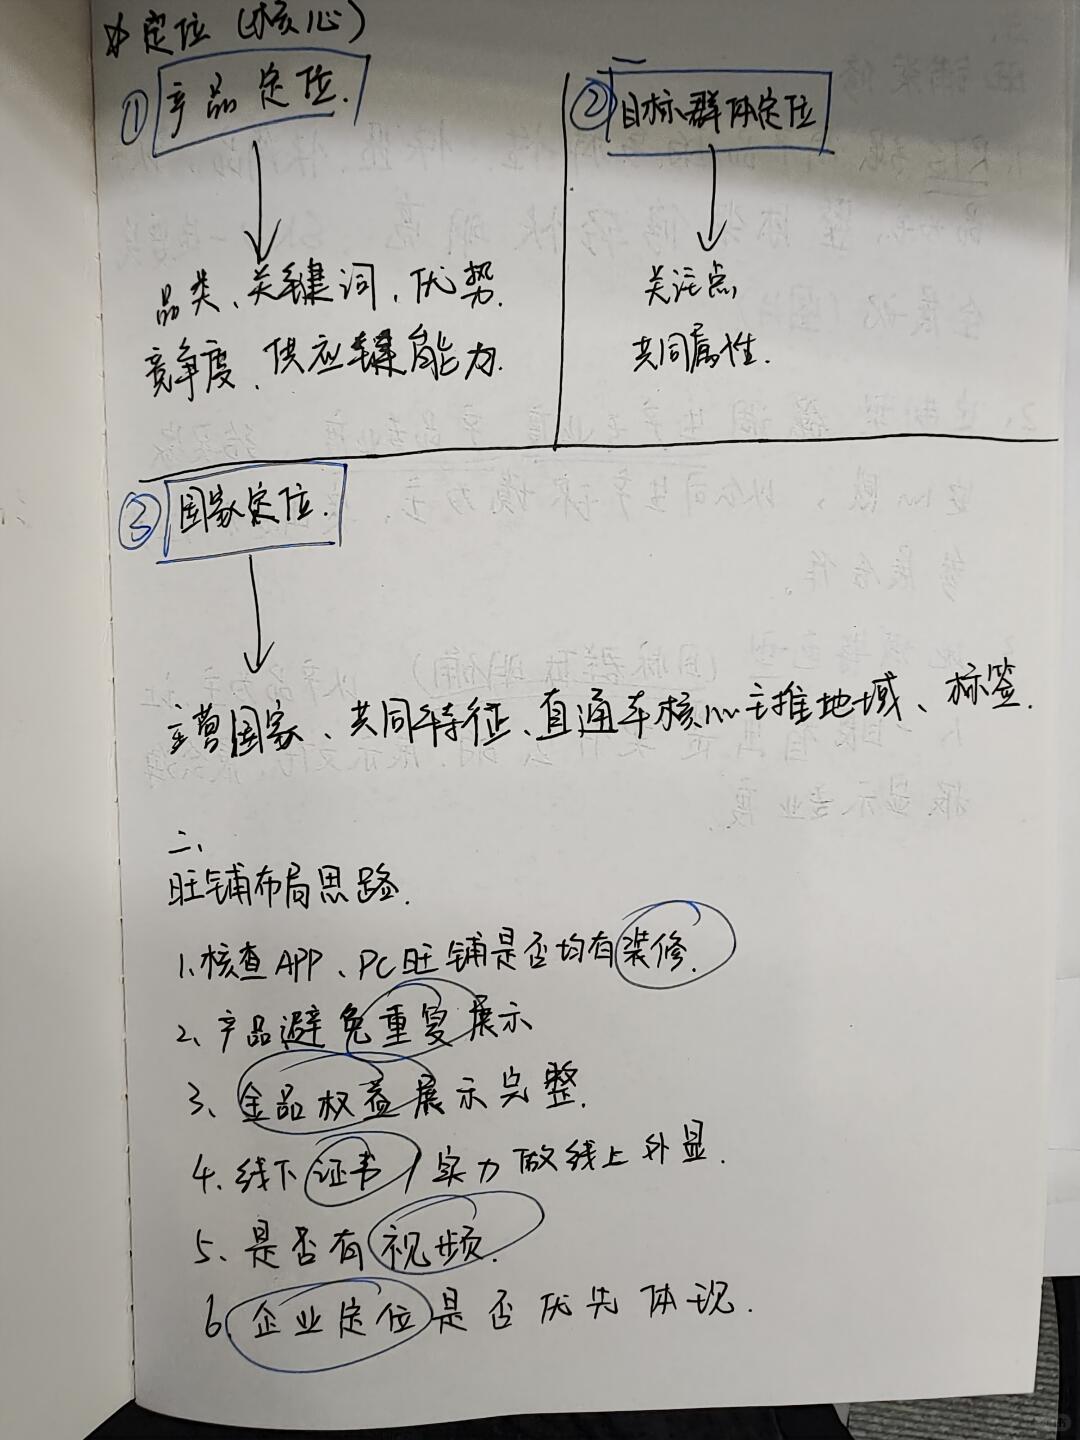 定位(核心)
① 产品定位.
品类、关键词、优势.
竞争度、供应链能力.
② 目标群体定位
关注点
共同属性.
③ 国家定位.
主营国家、共同特征、直通车核心主推地域、标签.
二、
旺铺布局思路.
1.核查APP、PC旺铺是否均有装修.
2、产品避免重复展示
3、金品权益展示完整.
4.线下证书/实力做线上外显.
5、是否有视频.
6.企业定位是否优先体现.